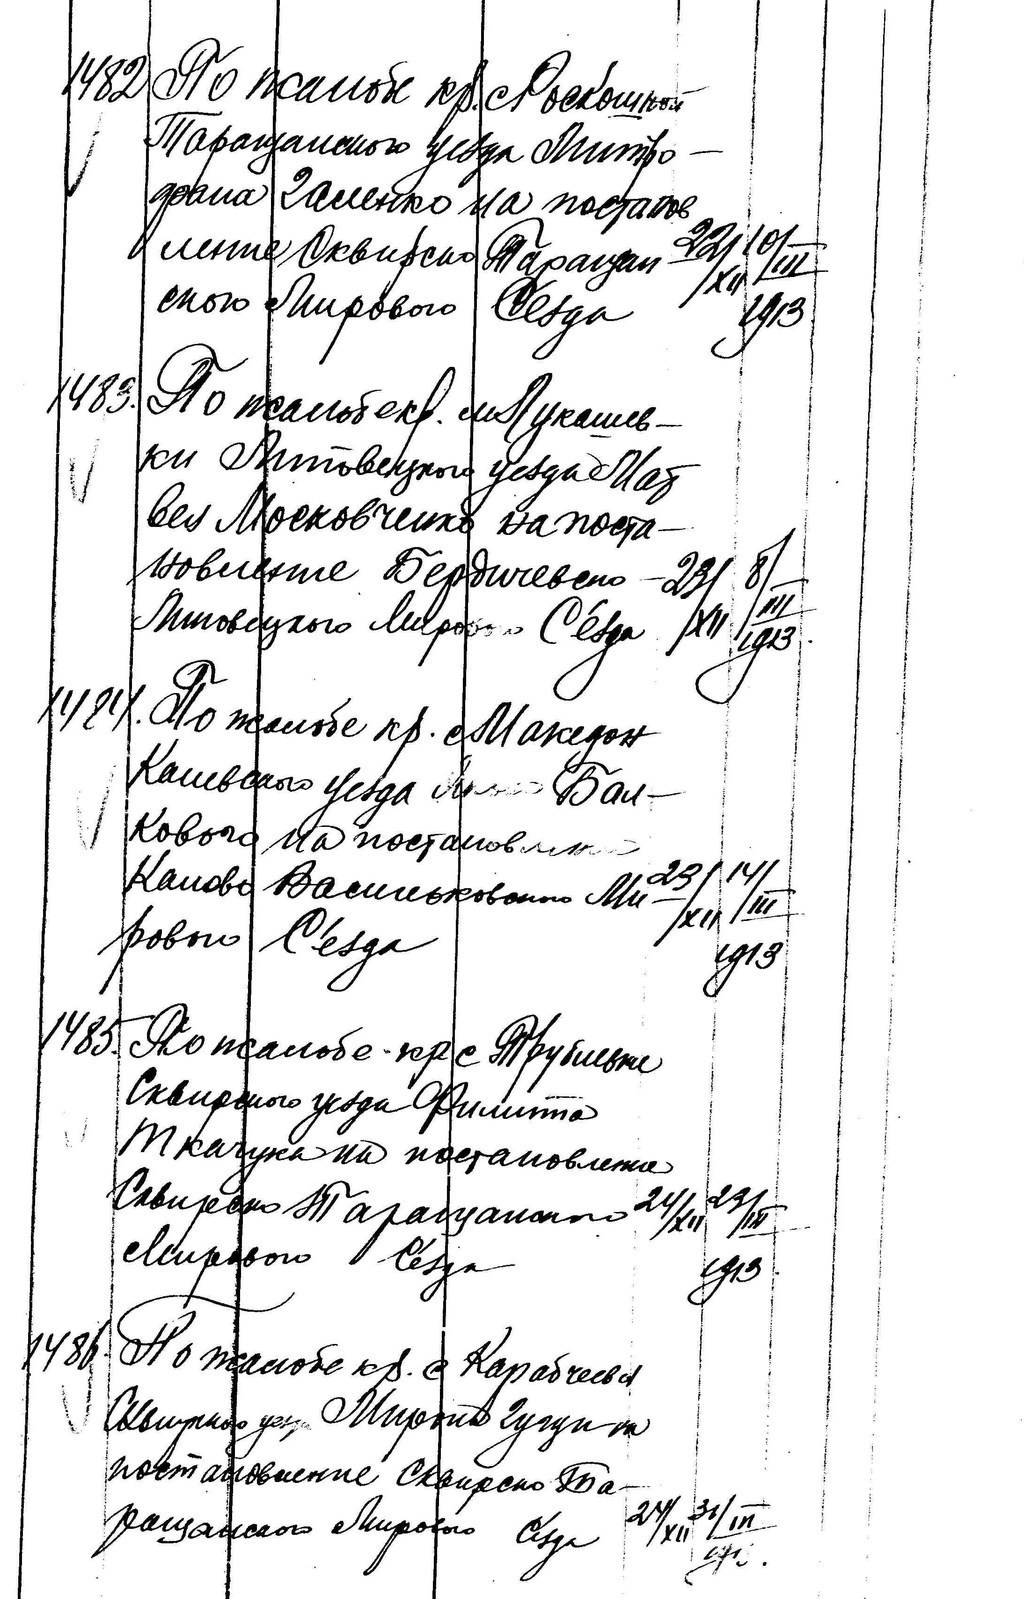 1482 По жалобе кр. с Роскошной
Таращанского уезда Митро-
фана Галенко на постанов
ление Сквирско Таращан 22/XII 10/III
ского Мирового Съезда 1913
1483. По жалобе кр. м Лукашев-
ки Липовецкого уезда Мат
вея Московченко на поста-
новление Бердичевско- 23/XII 8/III
Липовецкого Мирового Съезда 1913.
1484. По жалобе кр. с Македон
Каневского уезда Бал-
кового на постановление
Канево Васильковского Ми 23/XII 14/III
рового Съезда 1913
1485. По жалобе кр с Трубиевки
Сквирского уезда Филиппа
Ткачука на постановление
Сквирско Таращанского 24/XII 23/III
Мирового Съезда 1913
1486. По жалобе кр. с Карабчеева
Сквирского уезда Мирона на
постановление Сквирско Та-
ращанского Мирового Съезда 24/XII 31/III